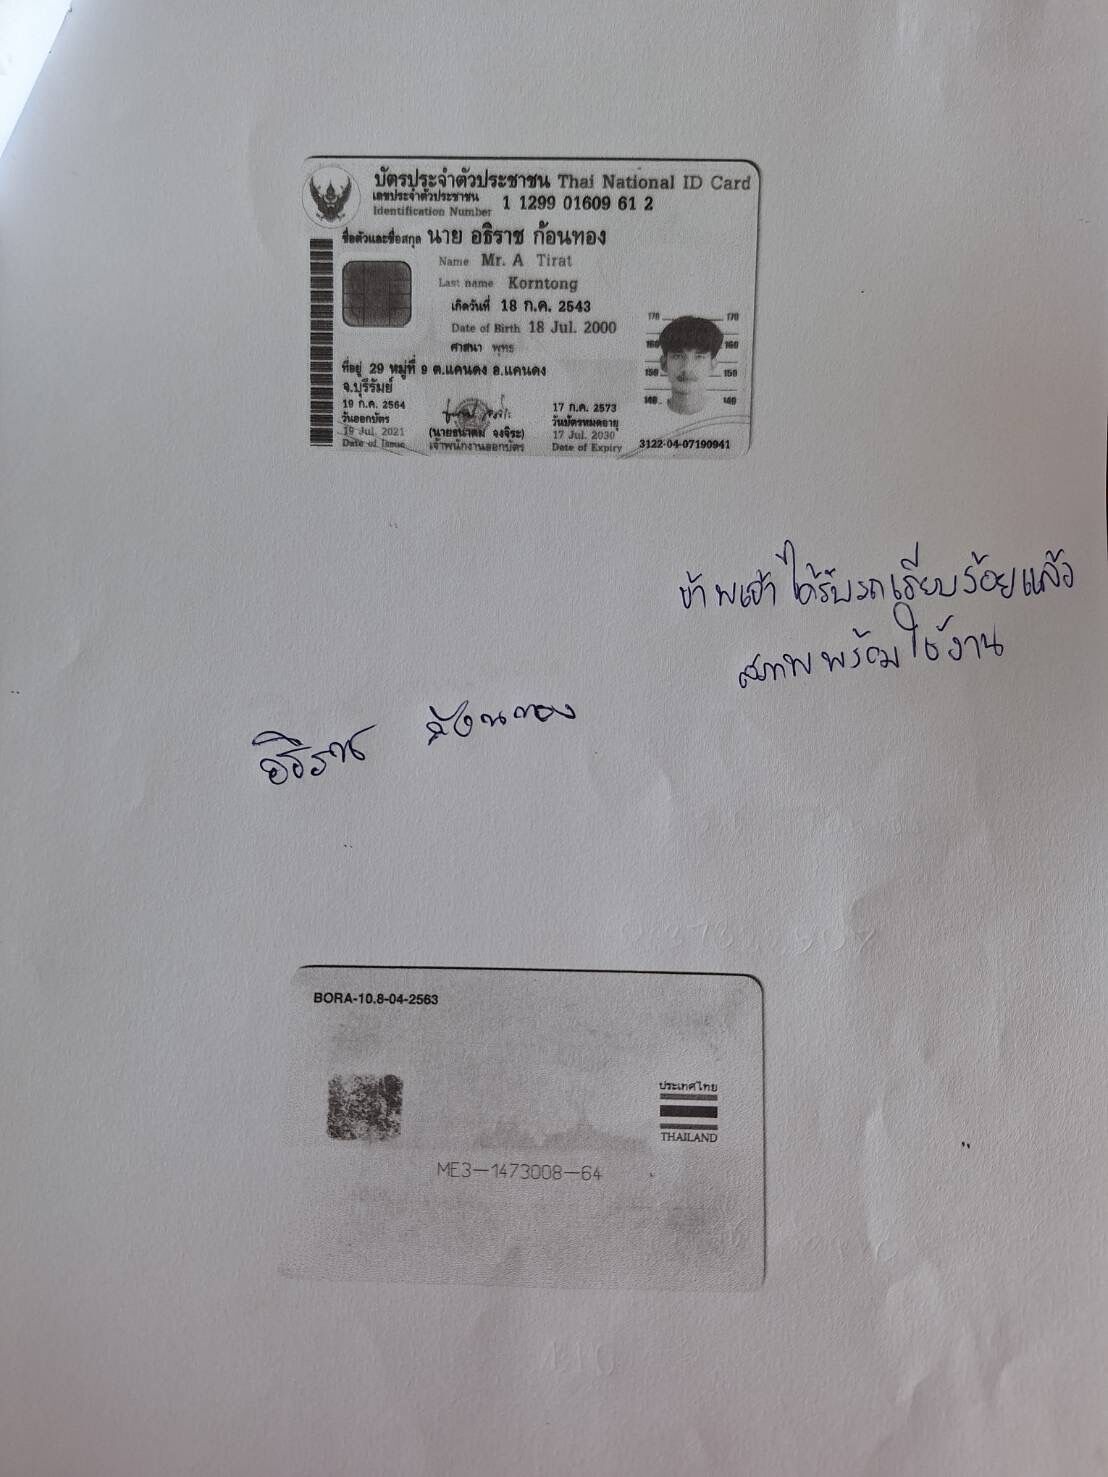 บัตรประจำตัวประชาชน Thai National ID Card
เลขประจำตัวประชาชน
Identification Number 1 1299 01609 61 2
ชื่อตัวและชื่อสกุล นาย อธิราช ก้อนทอง
Name Mr. A Tirat
Last name Korntong
เกิดวันที่ 18 ก.ค. 2543
Date of Birth 18 Jul. 2000
ศาสนา พุทธ
ที่อยู่ 29 หมู่ที่ 9 ต.แคนดง อ.แคนดง
จ.บุรีรัมย์
19 ก.ค. 2564
วันออกบัตร
19 Jul. 2021
Date of Issue
เจ้าพนักงานออกบัตร
17 ก.ค. 2573
วันบัตรหมดอายุ
17 Jul. 2030
Date of Expiry
170 170
160 160
150 150
140 140
3122-04-07190941
ข้าพเจ้าได้รับรถเรียบร้อยแล้ว
สภาพพร้อมใช้งาน
อธิราช ก้อนทอง
BORA-10.8-04-2563
ประเทศไทย
THAILAND
ME3-1473008-64